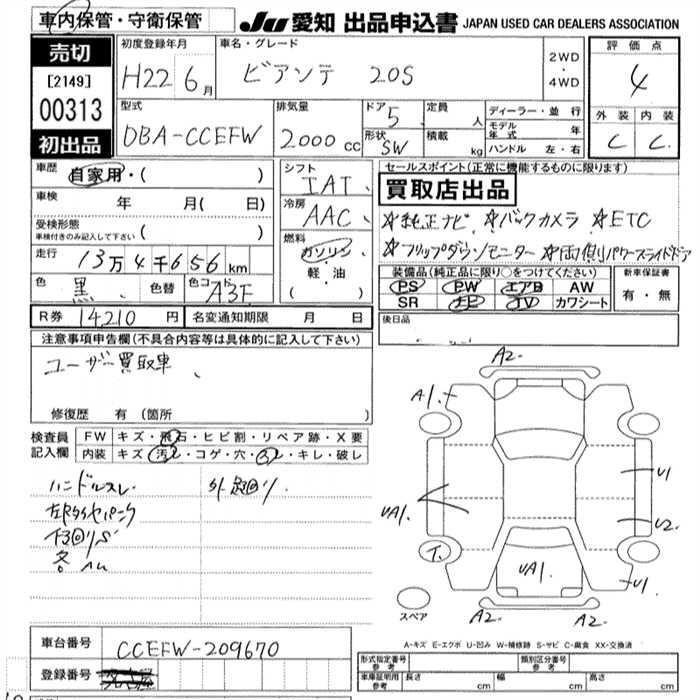 車内保管・守衛保管
JU 愛知 出品申込書 JAPAN USED CAR DEALERS ASSOCIATION
売切
[2149]
00313
初出品
初度登録年月 車名・グレード 2WD・4WD
H22 6月 ビアンテ 20S
型式 排気量 ドア 定員 人
DBA-CCEFW 2000cc 5
形状 積載 kg
SW
ディーラー・並行
モデル年式 年
ハンドル 左・右
評価点
4
外装 内装
C C
車歴 自家用・( )
車検 年 月( 日)
受検形態
車検付きのみ記入して下さい ( )
走行 13万4千656km
色 黒 色替 色コード A3F
R券 14210円 名変通知期限 月 日
シフト IAT
冷房 AAC
燃料 ガソリン
軽・油
( )
セールスポイント(正常に機能するものに限ります)
買取店出品
☆純正ナビ ☆バックカメラ ☆ETC
☆フリップダウンモニター ☆両側パワースライドドア
装備品(純正品に限り○をつけてください) 新車保証書
PS PW エアB AW 有・無
SR TV カワシート
後日品
注意事項申告欄(不具合内容等は具体的に記入して下さい)
ユーザー買取車
修復歴 有 (箇所 )
検査員記入欄 FW キズ・飛石・ヒビ割・リペア跡・X要
内装 キズ・汚レ・コゲ・穴・・キレ・破レ
ハンドルスレ
A2
A1
UA1 U1
U2
UA1 U1
A2 A2
スペア
A-キズ E-エクボ U-凹み W-補修跡 S-サビ C-腐食 XX-交換済
車台番号 CCEFW-209670
登録番号
形式指定番号 参考 類別区分番号 参考
車庫証明用 参考 長さ cm 幅 cm 高さ cm